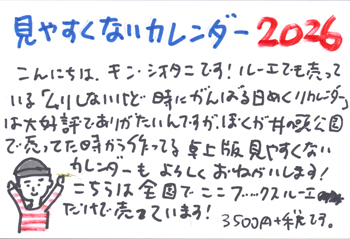 見やすくないカレンダー 2026
こんにちは、キン・シオタニです！ルーエでも売って
いる「ムリしないけど時にがんばる日めくりカレンダー」
は大好評でありがたいんですが、ぼくが井の頭公園
で売ってた時から作ってる卓上版見やすくない
カレンダーもよろしくおねがいします！
こちらは全国でここブックスルーエ
だけで売っています！
3500円+税です。